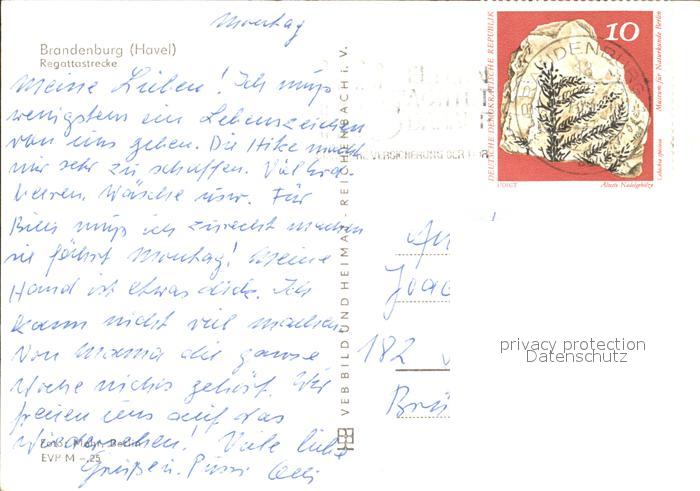 Montag
Brandenburg (Havel)
Regattastrecke
Meine Lieben! Ich muß
wenigstens ein Lebenszeichen
von uns geben. Die Hitze macht
mir sehr zu schaffen.
beeren, Wäsche usw. Für
muß ich zurecht machen
sie fährt Montag! Meine
Hand ist etwas dick. Ich
kann nicht viel machen.
Von Mama die ganze
Woche nichts gehört. Wir
freuen uns auf das
Wiedersehen! Viele liebe
Foto: Mayr, Berlin
EVP M -,25
Grüßen.
VEB BILD UND HEIMAT REICHENBACH i. V.
VERSICHERUNG DER
DEUTSCHE DEMOKRATISCHE REPUBLIK
10
Museum für Naturkunde Berlin
Lebachia speciosa
VOIGT
Älteste Nadelgehölze
BRANDENBURG
An
Joac
182
Brü
privacy protection
Datenschutz